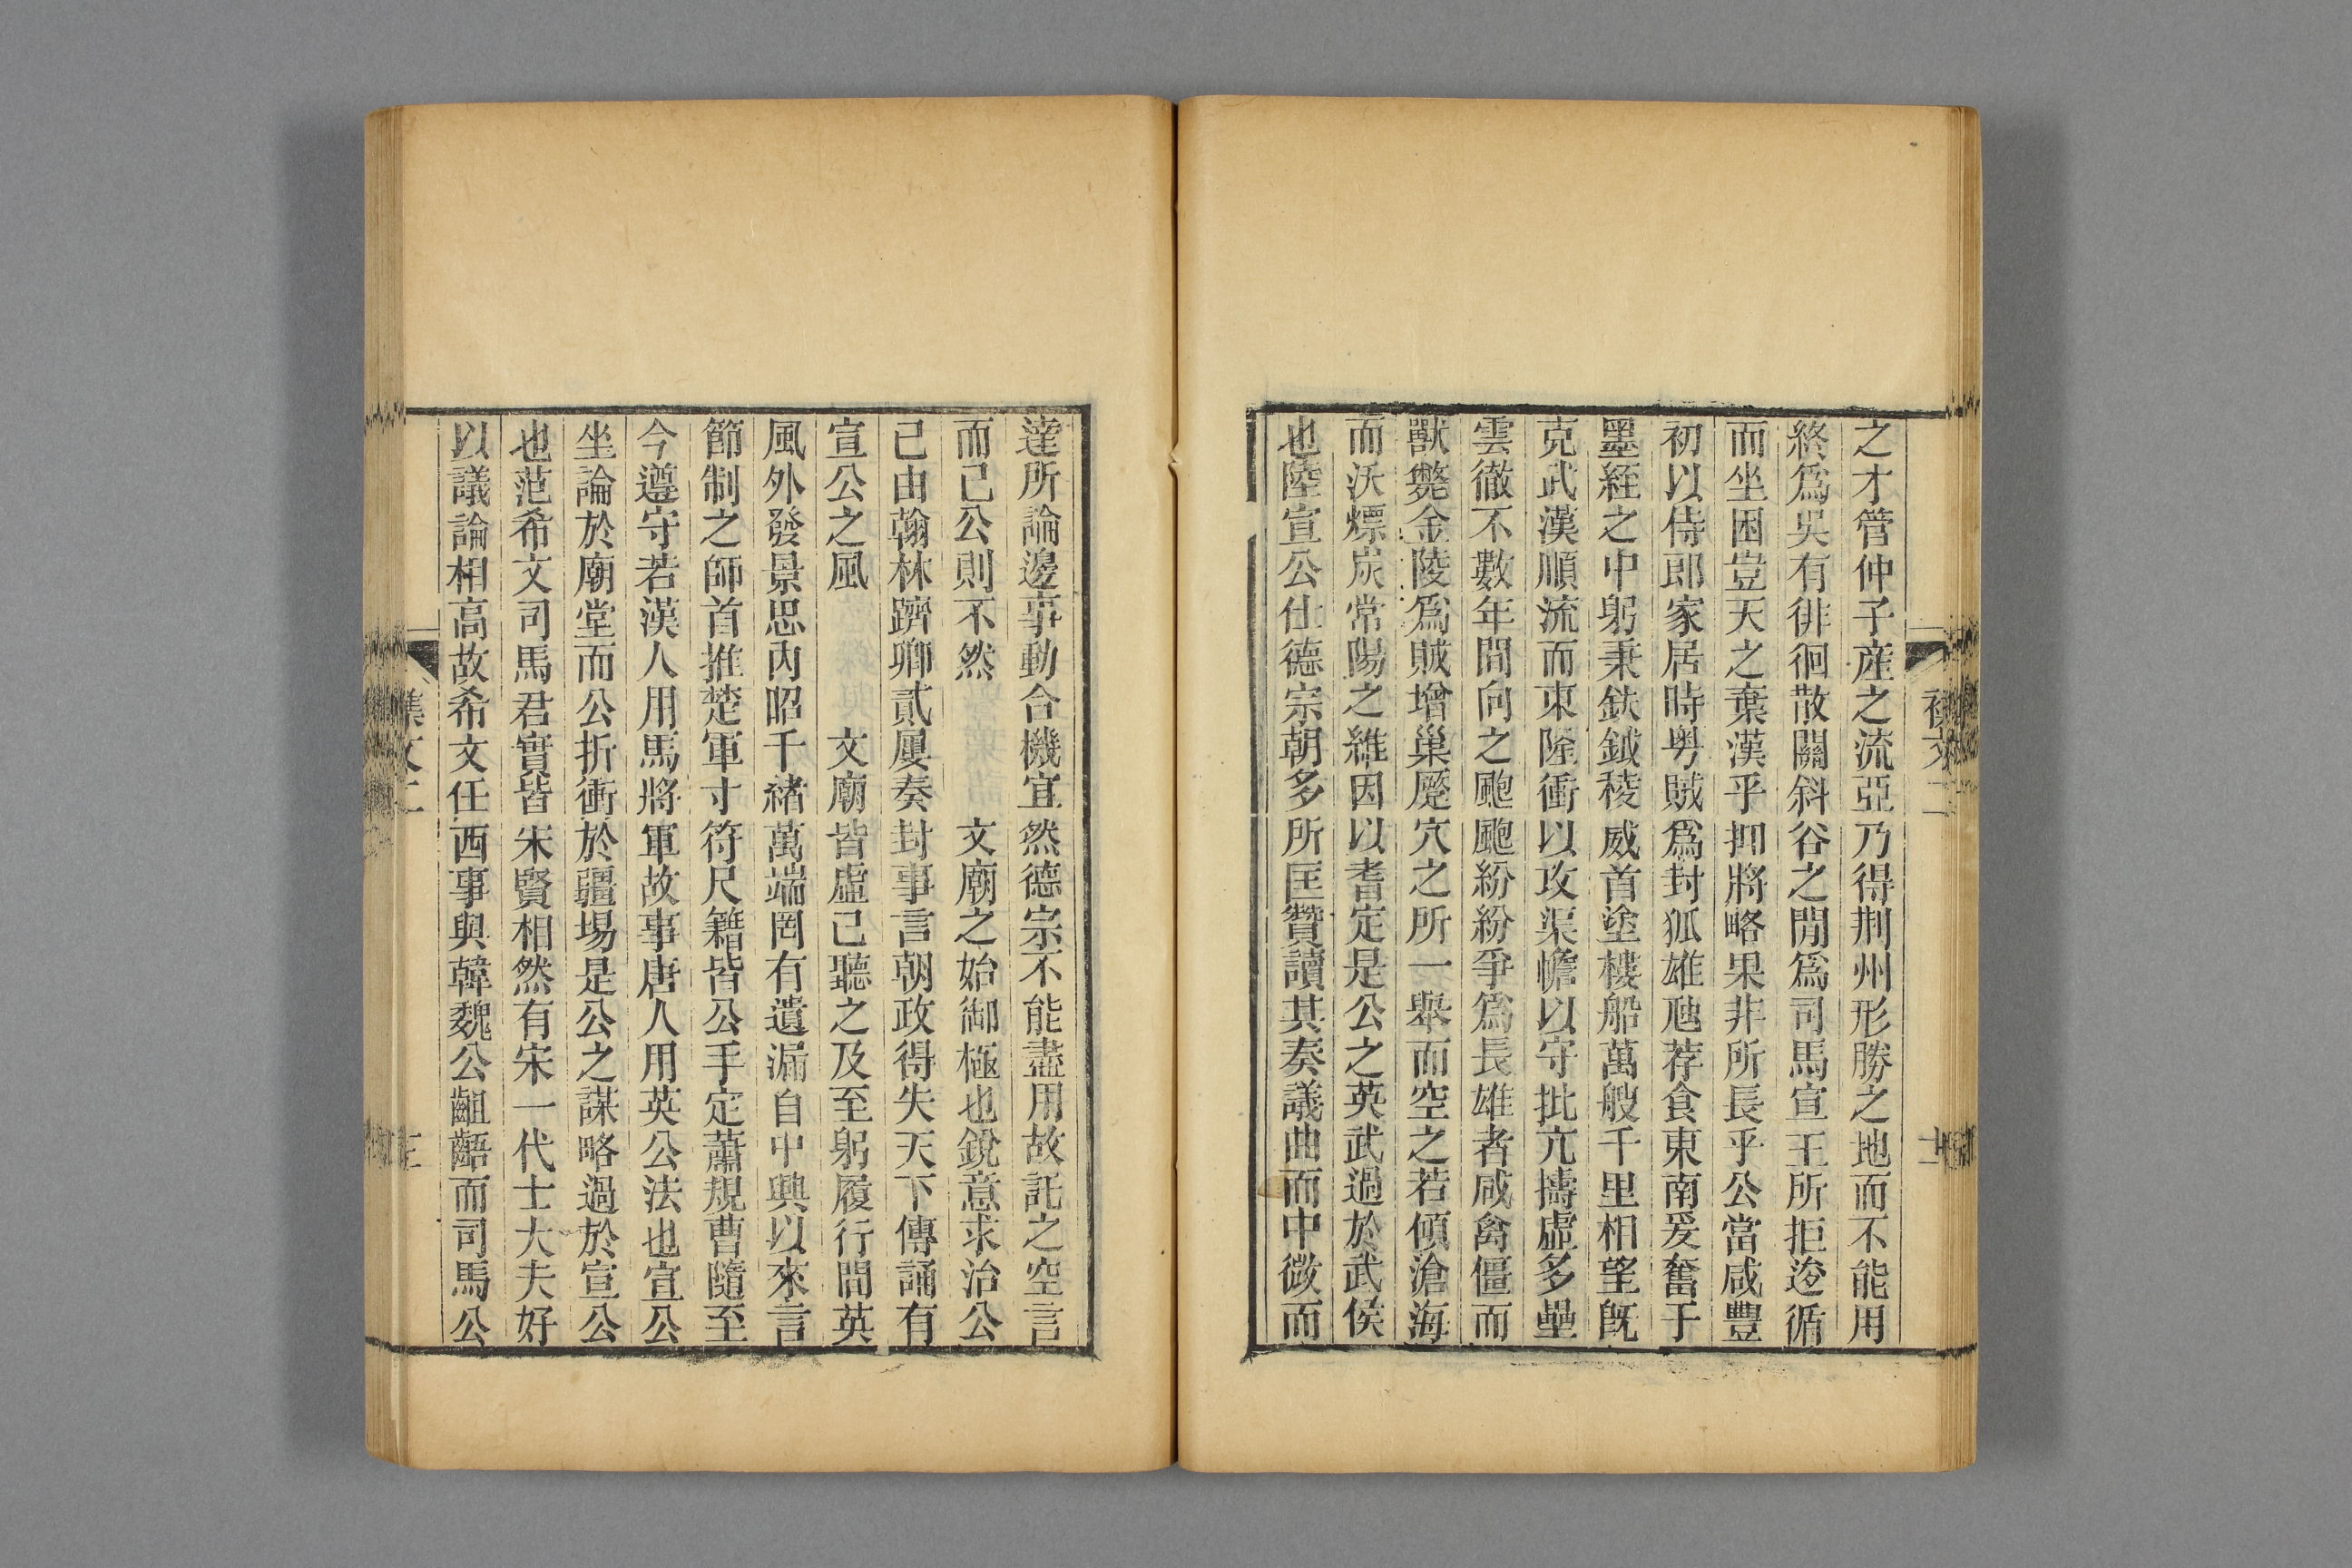 之才管仲子産之流亞乃得荆州形勝之地而不能用
終爲吳有徘徊散關斜谷之閒爲司馬宣王所拒逡循
而坐困豈天之棄漢乎抑將略果非所長乎公當咸豐
初以侍郎家居時粤賊爲封狐雄虺荐食東南爰奮于
墨絰之中躬秉鈇鉞稜威首塗樓船萬艘千里相望旣
克武漢順流而東陸衝以攻渠幨以守批亢擣虛多壘
雲徹不數年間向之颮颮紛紛爭爲長雄者咸禽僵而
獸斃金陵爲賊增巢屢穴之所一舉而空之若傾滄海
而沃熛炭常陽之維因以耆定是公之英武過於武侯
也陸宣公仕德宗朝多所匡贊讀其奏議曲而中微而
達所論邊事動合機宜然德宗不能盡用故託之空言
而已公則不然 文廟之始御極也銳意求治公
已由翰林躋卿貳屢奏封事言朝政得失天下傳誦有
宣公之風 文廟皆虛己聽之及至躬履行間英
風外發景思內昭千緒萬端罔有遺漏自中興以來言
節制之師首推楚軍寸符尺籍皆公手定蕭規曹隨至
今遵守若漢人用馬將軍故事唐人用英公法也宣公
坐論於廟堂而公折衝於疆埸是公之謀略過於宣公
也范希文司馬君實皆宋賢相然有宋一代士大夫好
以議論相高故希文任西事與韓魏公齟齬而司馬公